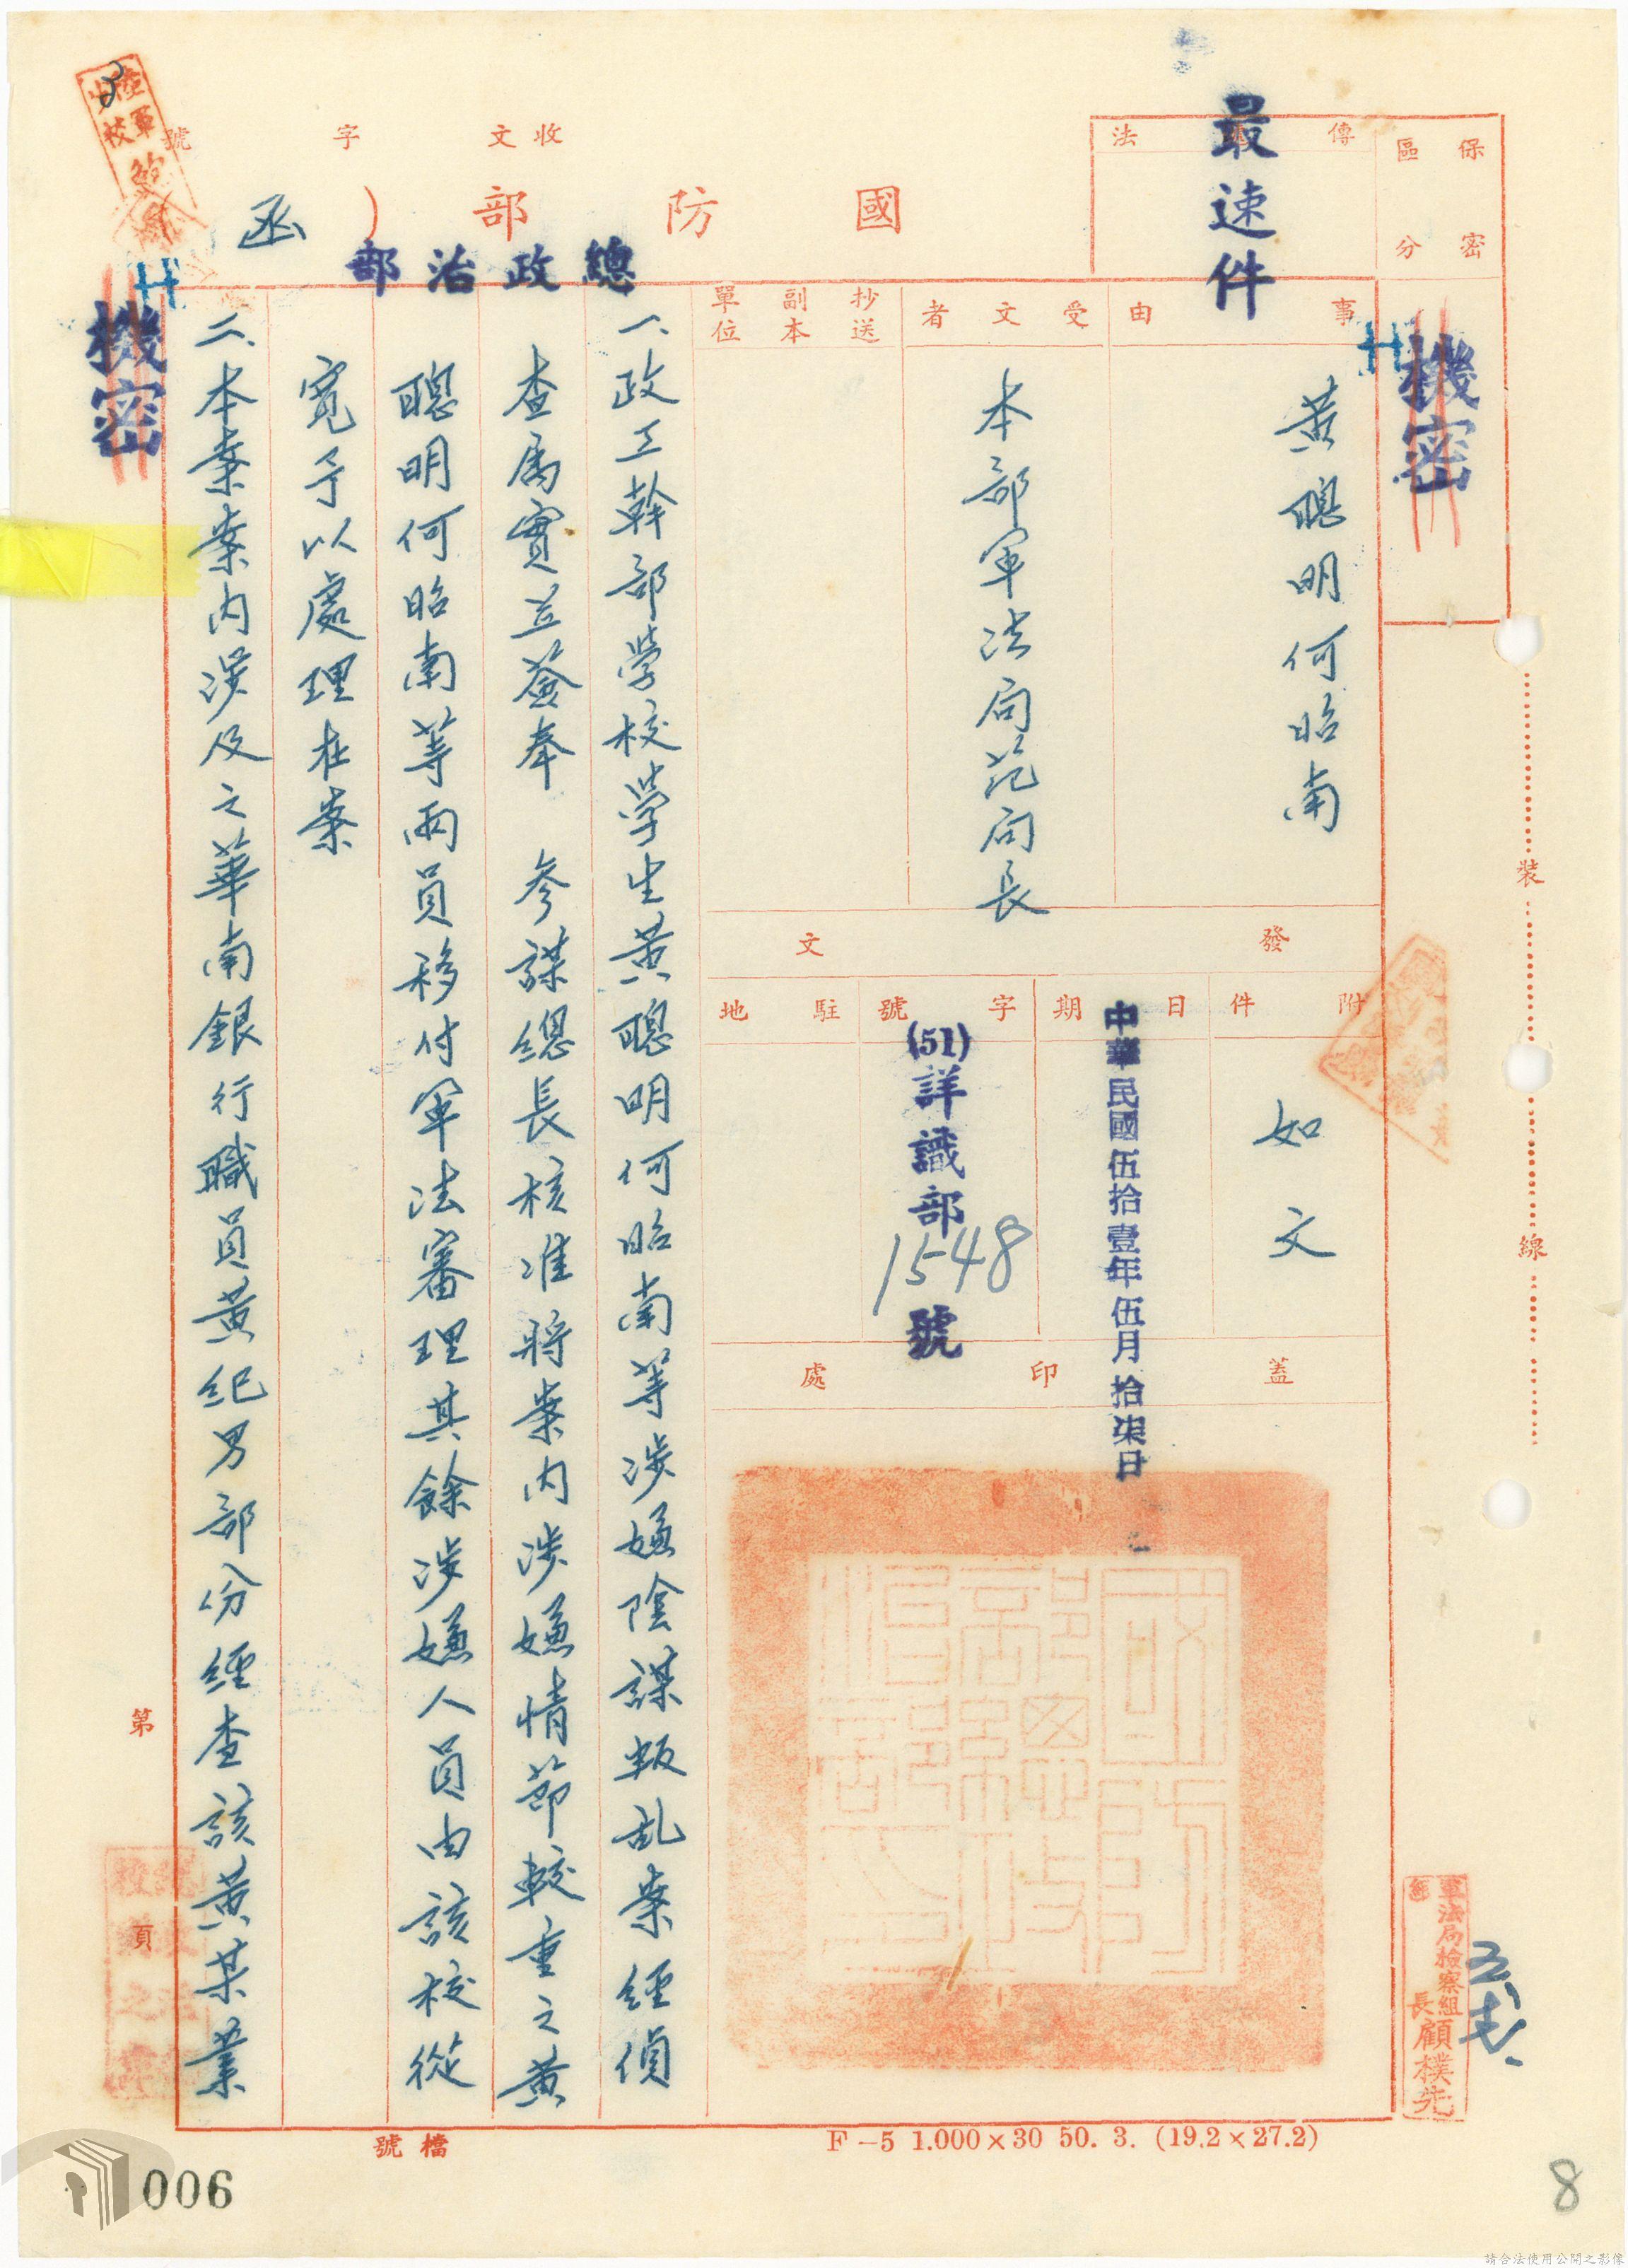 保密
區分
機密
傳 法
最速件
收文 字 號
國防部
總政治部
)
函
事由
黃聰明何昭南
受文者
本部軍法局范局長
抄送
副本
單位
發文
附件
如文
日期
中華民國伍拾壹年伍月拾柒日
字號
(51)詳識部1548號
駐地
蓋印處
一、政工幹部學校學生黃聰明何昭南等涉嫌陰謀叛乱案經偵
查屬實並簽奉 參謀總長核准將案內涉嫌情節較重之黃
聰明何昭南等兩員移付軍法審理其餘涉嫌人員由該校從
寬予以處理在案
二、本案案內涉及之華南銀行職員黃紀男部份經查該黃某業
機密
裝
線
第
頁
軍法局檢察組
組長顧樸先
檔號
F-5 1.000×30 50. 3. (19.2×27.2)
006
8
請合法使用公開之影像